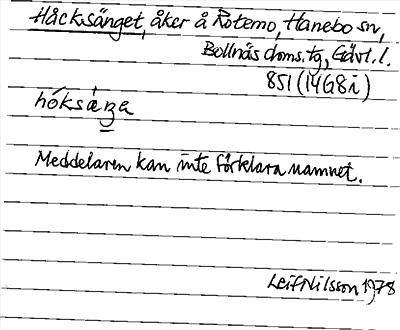 Håcksänget, åker å Rotemo, Hanebo sn,
Bollnäs doms.tg, Gävl.l.
851 (14G8i)
hóksæ̀ŋa
Meddelaren kan inte förklara namnet.
Leif Nilsson 1978